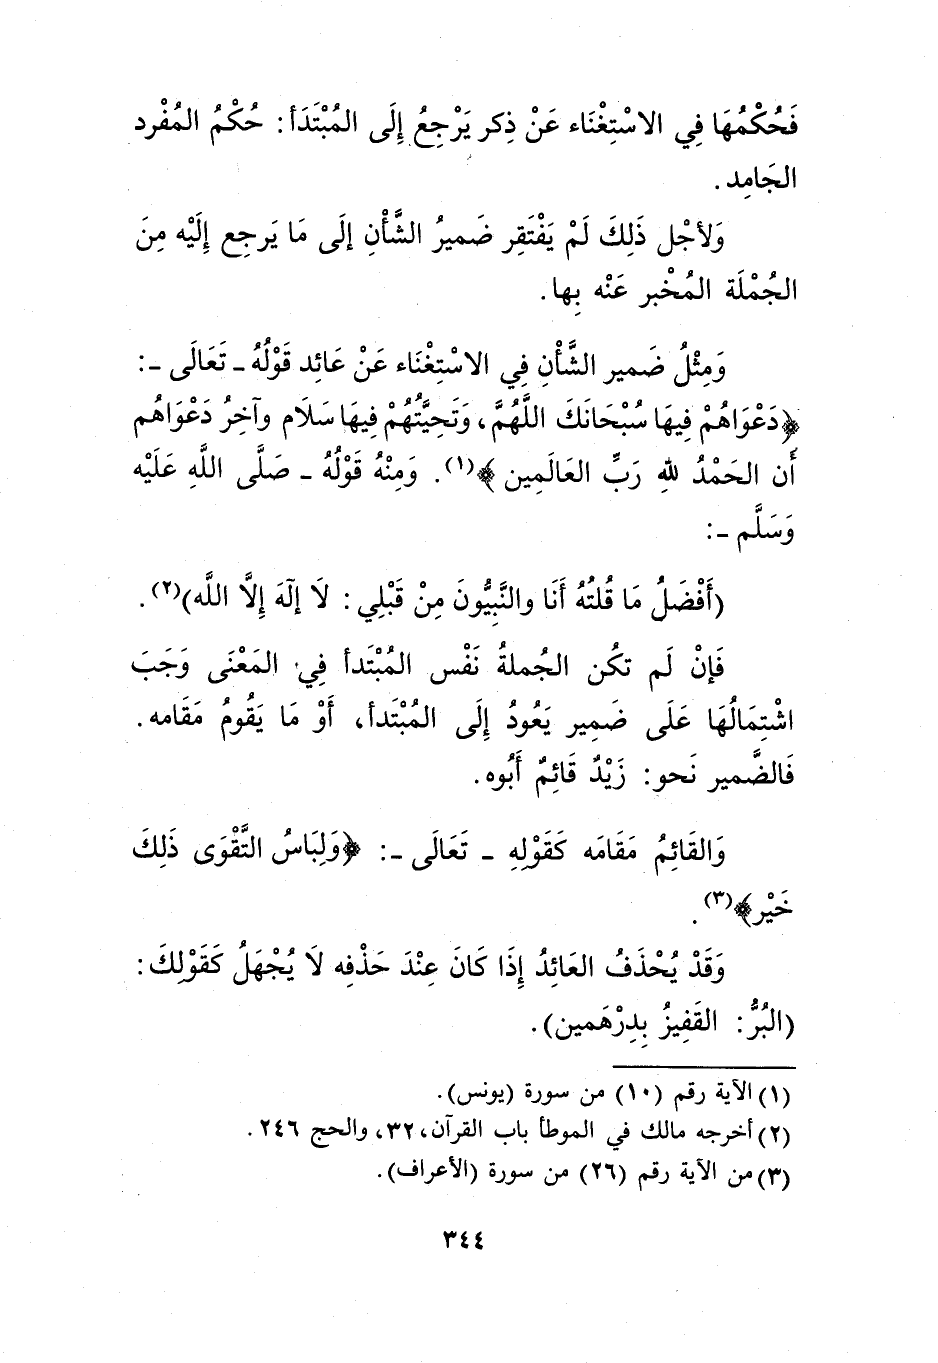 فَحُكْمُهَا فِي الاسْتِغْنَاء عَنْ ذِكر يَرْجِعُ إِلَى المُبْتَدَأ: حُكْمُ المُفْرد
الجَامِد.
وَلأجْل ذَلِكَ لَمْ يَفْتَقِر ضَميرُ الشَّأْنِ إلَى مَا يَرجِع إِلَيْه مِنَ
الجُمْلَة المُخْبر عَنْه بِها.
وَمِثْلُ ضَمير الشَّأْنِ فِي الاسْتِغْنَاء عَنْ عَائِد قَوْلُهُ ـ تَعَالَى ـ:
﴿دَعْوَاهُمْ فِيهَا سُبْحَانَكَ اللَّهُمَّ، وَتَحِيَّتُهُمْ فِيهَا سَلَام وآخِرُ دَعْوَاهُم
أَن الحَمْدُ للهِ رَبِّ العَالَمِين﴾(١). وَمِنْهُ قَوْلُهُ ـ صَلَّى اللَّهِ عَلَيْه
وَسَلَّم ـ:
(أَفْضَلُ مَا قُلتُهُ أَنَا والنَّبِيُّونَ مِنْ قَبْلِي: لَا إلَهَ إِلَّا اللَّه)(٢).
فَإنْ لَم تكُن الجُملةُ نَفْس المُبْتَدأ فِي المَعْنَى وَجَبَ
اشْتِمَالُهَا عَلَى ضَمِير يَعُودُ إِلَى المُبْتَدأ، أَوْ مَا يَقُومُ مَقَامه.
فَالضَّمير نَحو: زَيْدٌ قَائِمٌ أَبُوه.
وَالقَائِمُ مَقَامَه كَقَوْلِهِ ـ تَعَالَى ـ: ﴿وَلِبَاسُ التَّقْوَى ذَلِكَ
خَيْر﴾(٣).
وَقَدْ يُحْذَفُ العَائِدُ إِذَا كَانَ عِنْدَ حَذْفِه لَا يُجْهَلُ كَقَوْلِكَ:
(البُرُّ: القَفِيزُ بِدِرْهَمين).
(١) الآية رقم (١٠) من سورة (يونس).
(٢) أخرجه مالك في الموطأ باب القرآن،٣٢، والحج ٢٤٦.
(٣) من الآية رقم (٢٦) من سورة (الأعراف).
٣٤٤